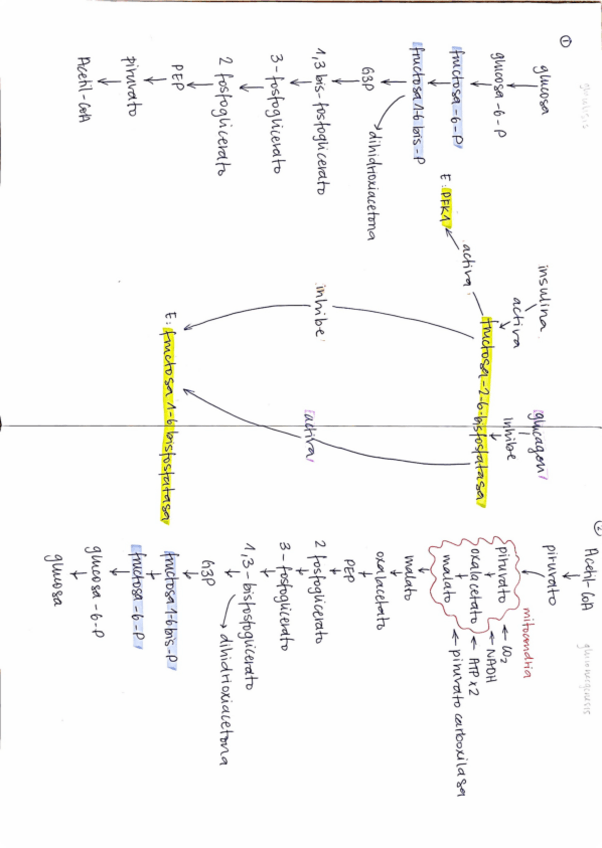 ①
glucólisis
glucosa
glucosa-6-P
fructosa-6-P
fructosa 1-6 bis-P
dihidroxiacetona
G3P
1,3 bis-fosfoglicerato
3-fosfoglicerato
2 fosfoglicerato
PEP
piruvato
Acetil-CoA
insulina
activa
fructosa-2-6-bisfosfatasa
activa
E: PFK1
inhibe
E: fructosa 1-6 bisfosfatasa
glucagon
inhibe
activa
②
gluconeogénesis
Acetil CoA
piruvato
mitocondria
piruvato
oxalacetato
malato
CO2
NADH
ATP x2
piruvato carboxilasa
malato
oxalacetato
PEP
2 fosfoglicerato
3-fosfoglicerato
1,3-bisfosfoglicerato
dihidroxiacetona
G3P
fructosa 1-6 bis-P
fructosa-6-P
glucosa-6-P
glucosa